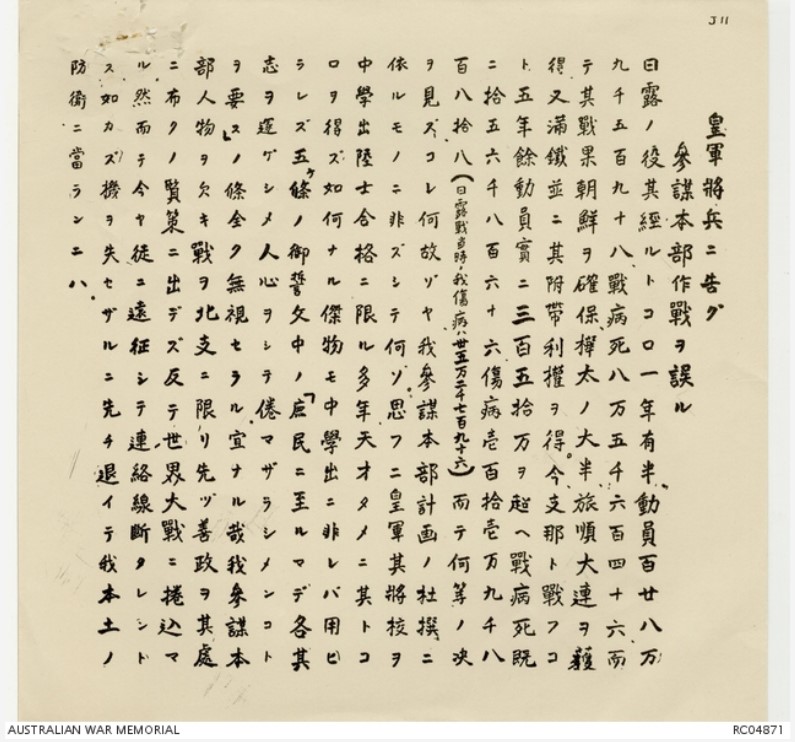 J11
皇軍將兵ニ告グ
參謀本部作戰ヲ誤ル
日露ノ役其經ルトコロ一年有半、動員百廿八万
九千五百九十八、戰病死八万五千六百四十六、而
テ其戰果朝鮮ヲ確保、樺太ノ大半、旅順大連ヲ獲
得、又滿鐵並ニ其附帶利權ヲ得。今支那ト戰フコ
ト五年餘動員實ニ三百五拾万ヲ超ヘ戰病死既
ニ拾五六千八百六十六傷病壱百拾壱万九千八
百八拾八(日露戰当時ノ我傷病ハ卅五万二千七百九十六)而テ何等ノ決
ヲ見ズコレ何故ゾヤ我參謀本部計画ノ杜撰ニ
依ルモノニ非ズシテ何ゾ。思フニ皇軍其將校ヲ
中學出陸士合格ニ限ル多年天才タメニ其トコ
ロヲ得ズ如何ナル傑物モ中學出ニ非レバ用ヒ
ラレズ五ヶ條ノ御誓文中ノ「庶民ニ至ルマデ各其
志ヲ遂ゲシメ人心ヲシテ倦マザラシメンコト
ヲ要ス」ノ條全ク無視セラル宜ナル哉我參謀本
部人物ヲ欠キ戰ヲ北支ニ限リ先ヅ善政ヲ其處
ニ布クノ賢策ニ出デズ反テ世界大戰ニ捲込マ
ル然而テ今ヤ徒ニ遠征シテ連絡線断タレントト
ス如カズ機ヲ失セザルニ先チ退イテ我本土ノ
防衛ニ當ランニハ。
AUSTRALIAN WAR MEMORIAL
RC04871